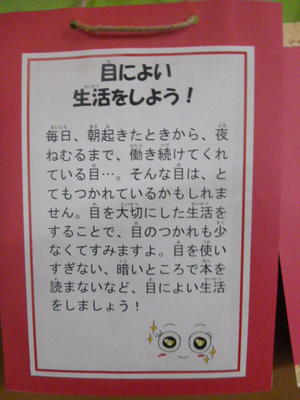 目によい
生活をしよう!
毎日、朝起きたときから、夜
ねむるまで、働き続けてくれ
ている目…。そんな目は、と
てもつかれているかもしれま
せん。目を大切にした生活を
することで、目のつかれも少
なくてすみますよ。目を使い
すぎない、暗いところで本を
読まないなど、目によい生活
をしましょう!